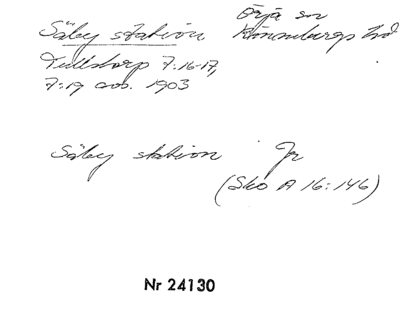 Säby station Örja sn
Rönnebergs hd
Tullstorp 7:16-17,
7:19 avs. 1903
Säby station Jr
(Sko A 16:146)
Nr 24130